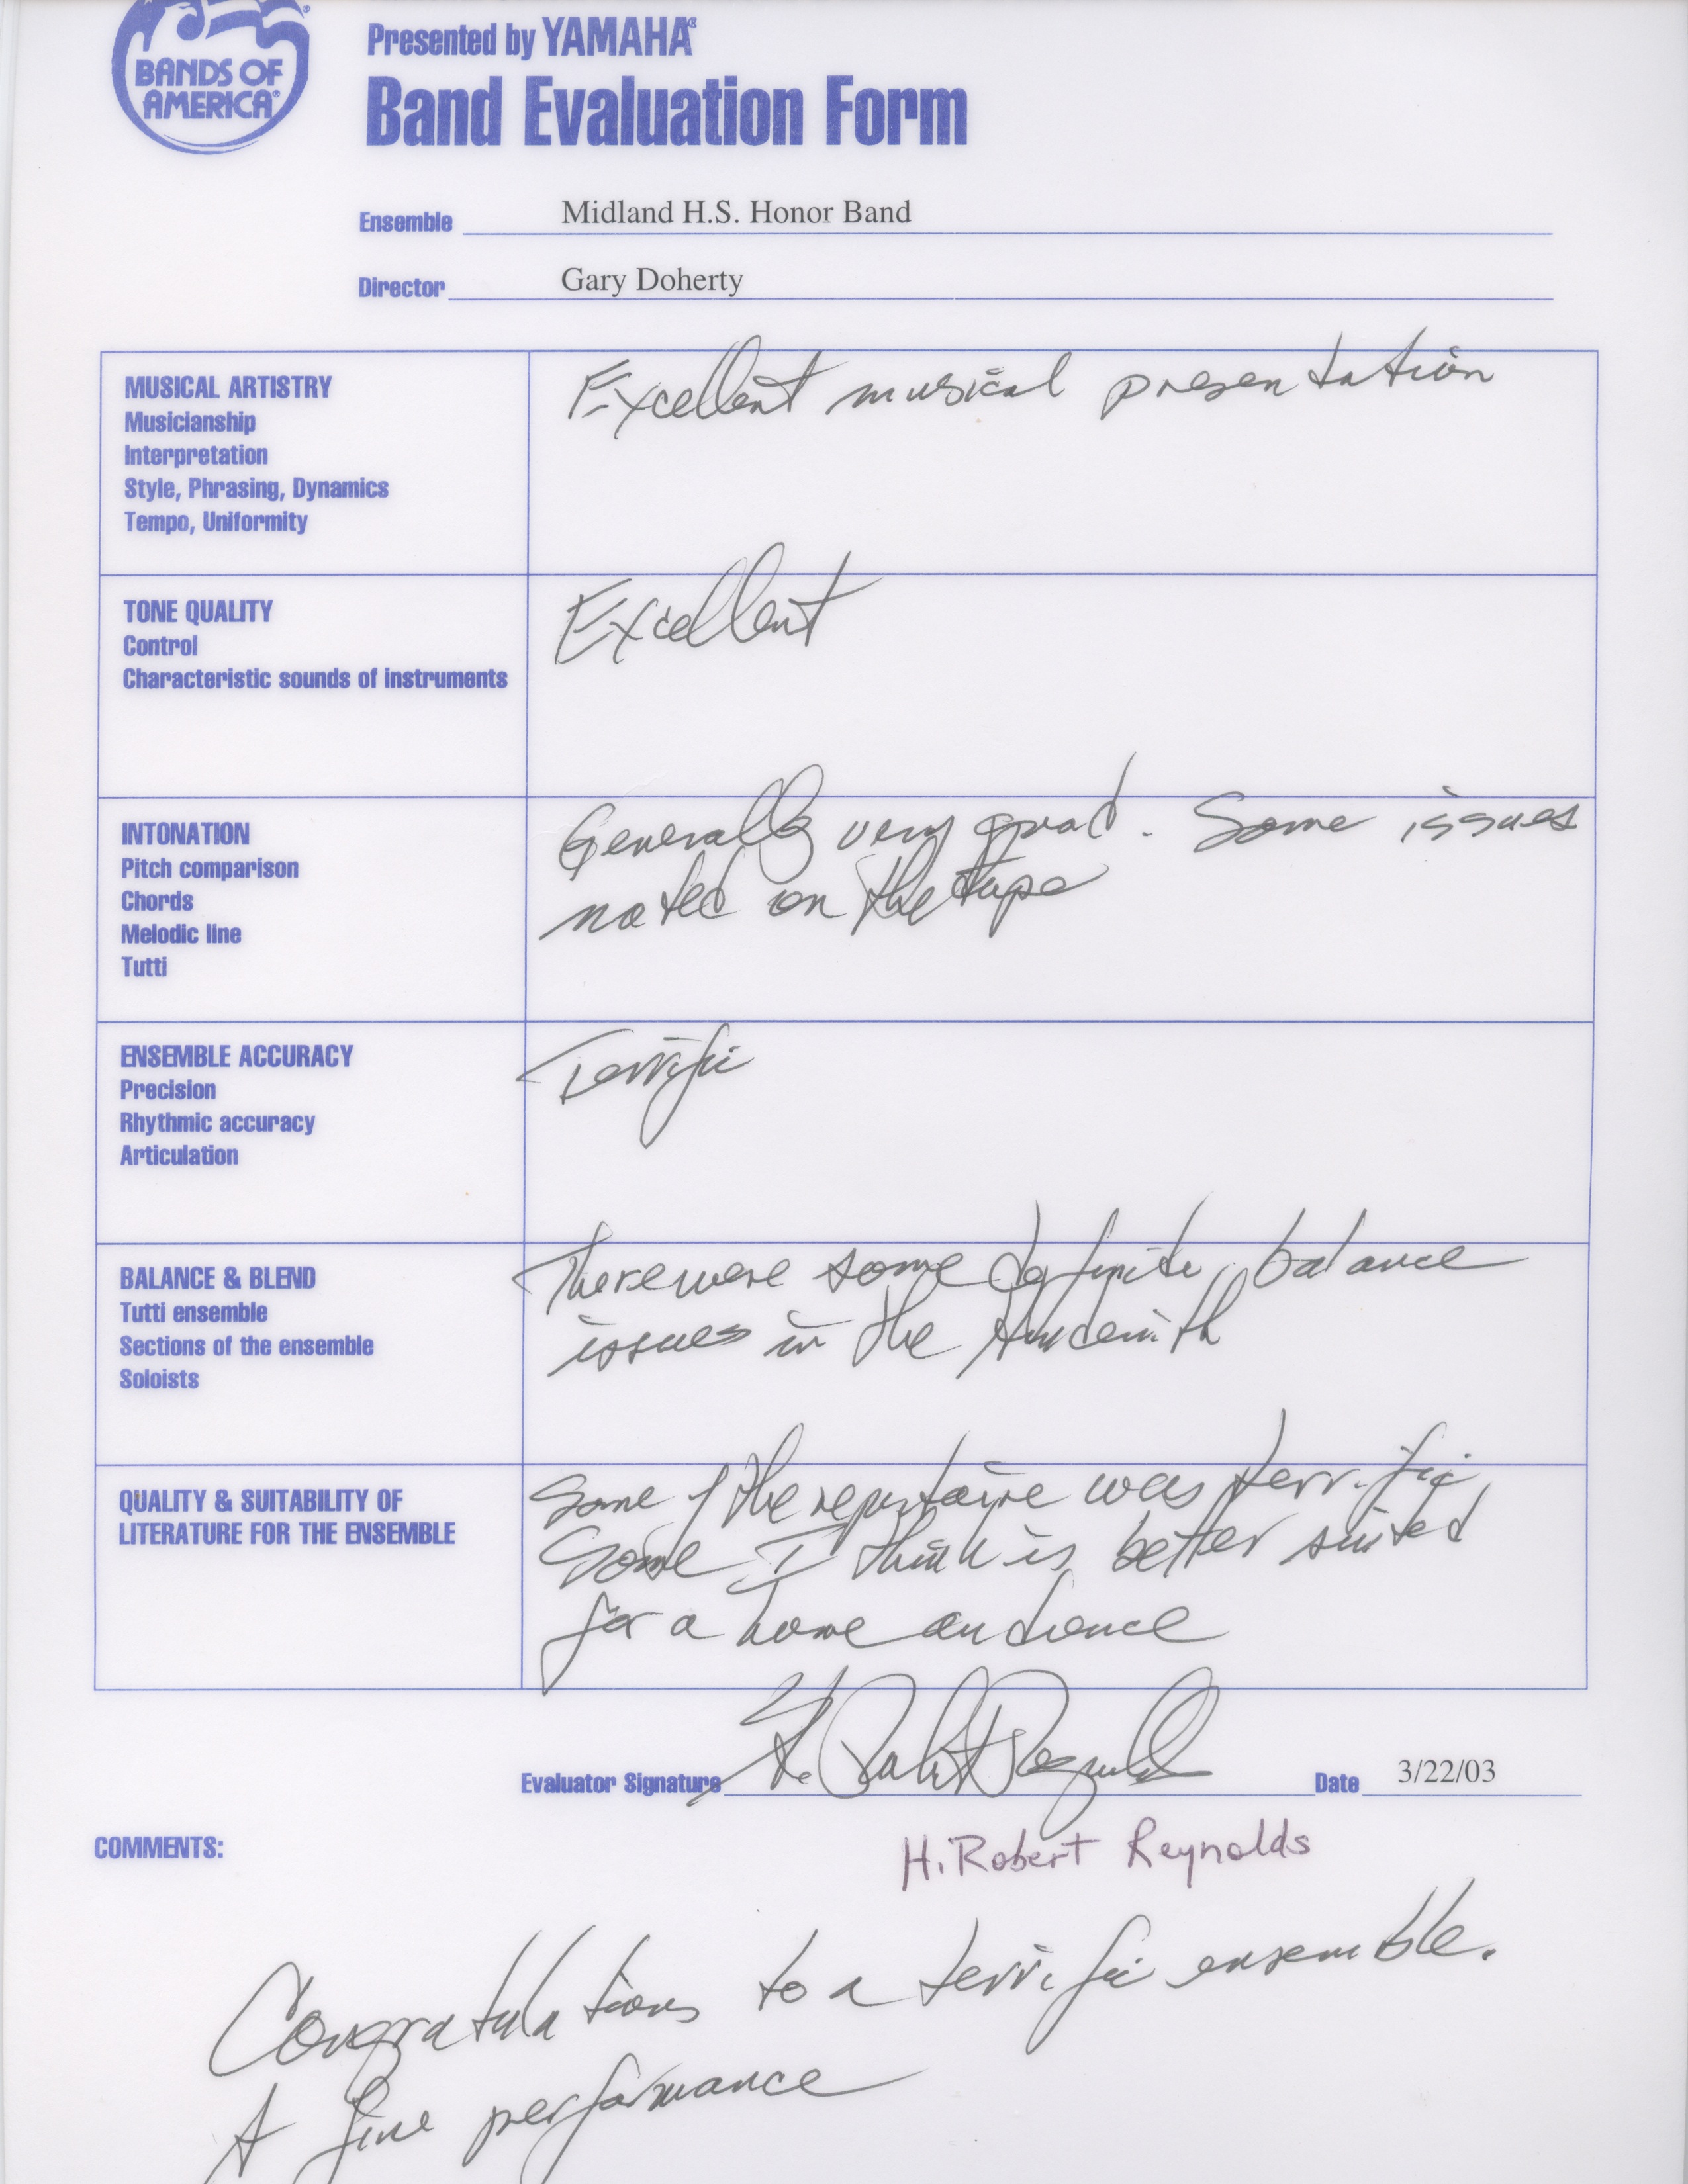 BANDS OF
AMERICA®
Presented by YAMAHA®
Band Evaluation Form
Ensemble Midland H.S. Honor Band
Director Gary Doherty
MUSICAL ARTISTRY
Musicianship
Interpretation
Style, Phrasing, Dynamics
Tempo, Uniformity
Excellent musical presentation
TONE QUALITY
Control
Characteristic sounds of instruments
Excellent
INTONATION
Pitch comparison
Chords
Melodic line
Tutti
Generally very good. Some issues
noted on the tape
ENSEMBLE ACCURACY
Precision
Rhythmic accuracy
Articulation
Terrific
BALANCE & BLEND
Tutti ensemble
Sections of the ensemble
Soloists
There were some definite balance
issues in the Hindemith
QUALITY & SUITABILITY OF
LITERATURE FOR THE ENSEMBLE
Some of the repertoire was terrific
Some I think is better suited
for a home audience
Evaluator Signature H. Robert Reynolds Date 3/22/03
H. Robert Reynolds
COMMENTS:
Congratulations to a terrific ensemble.
A fine performance